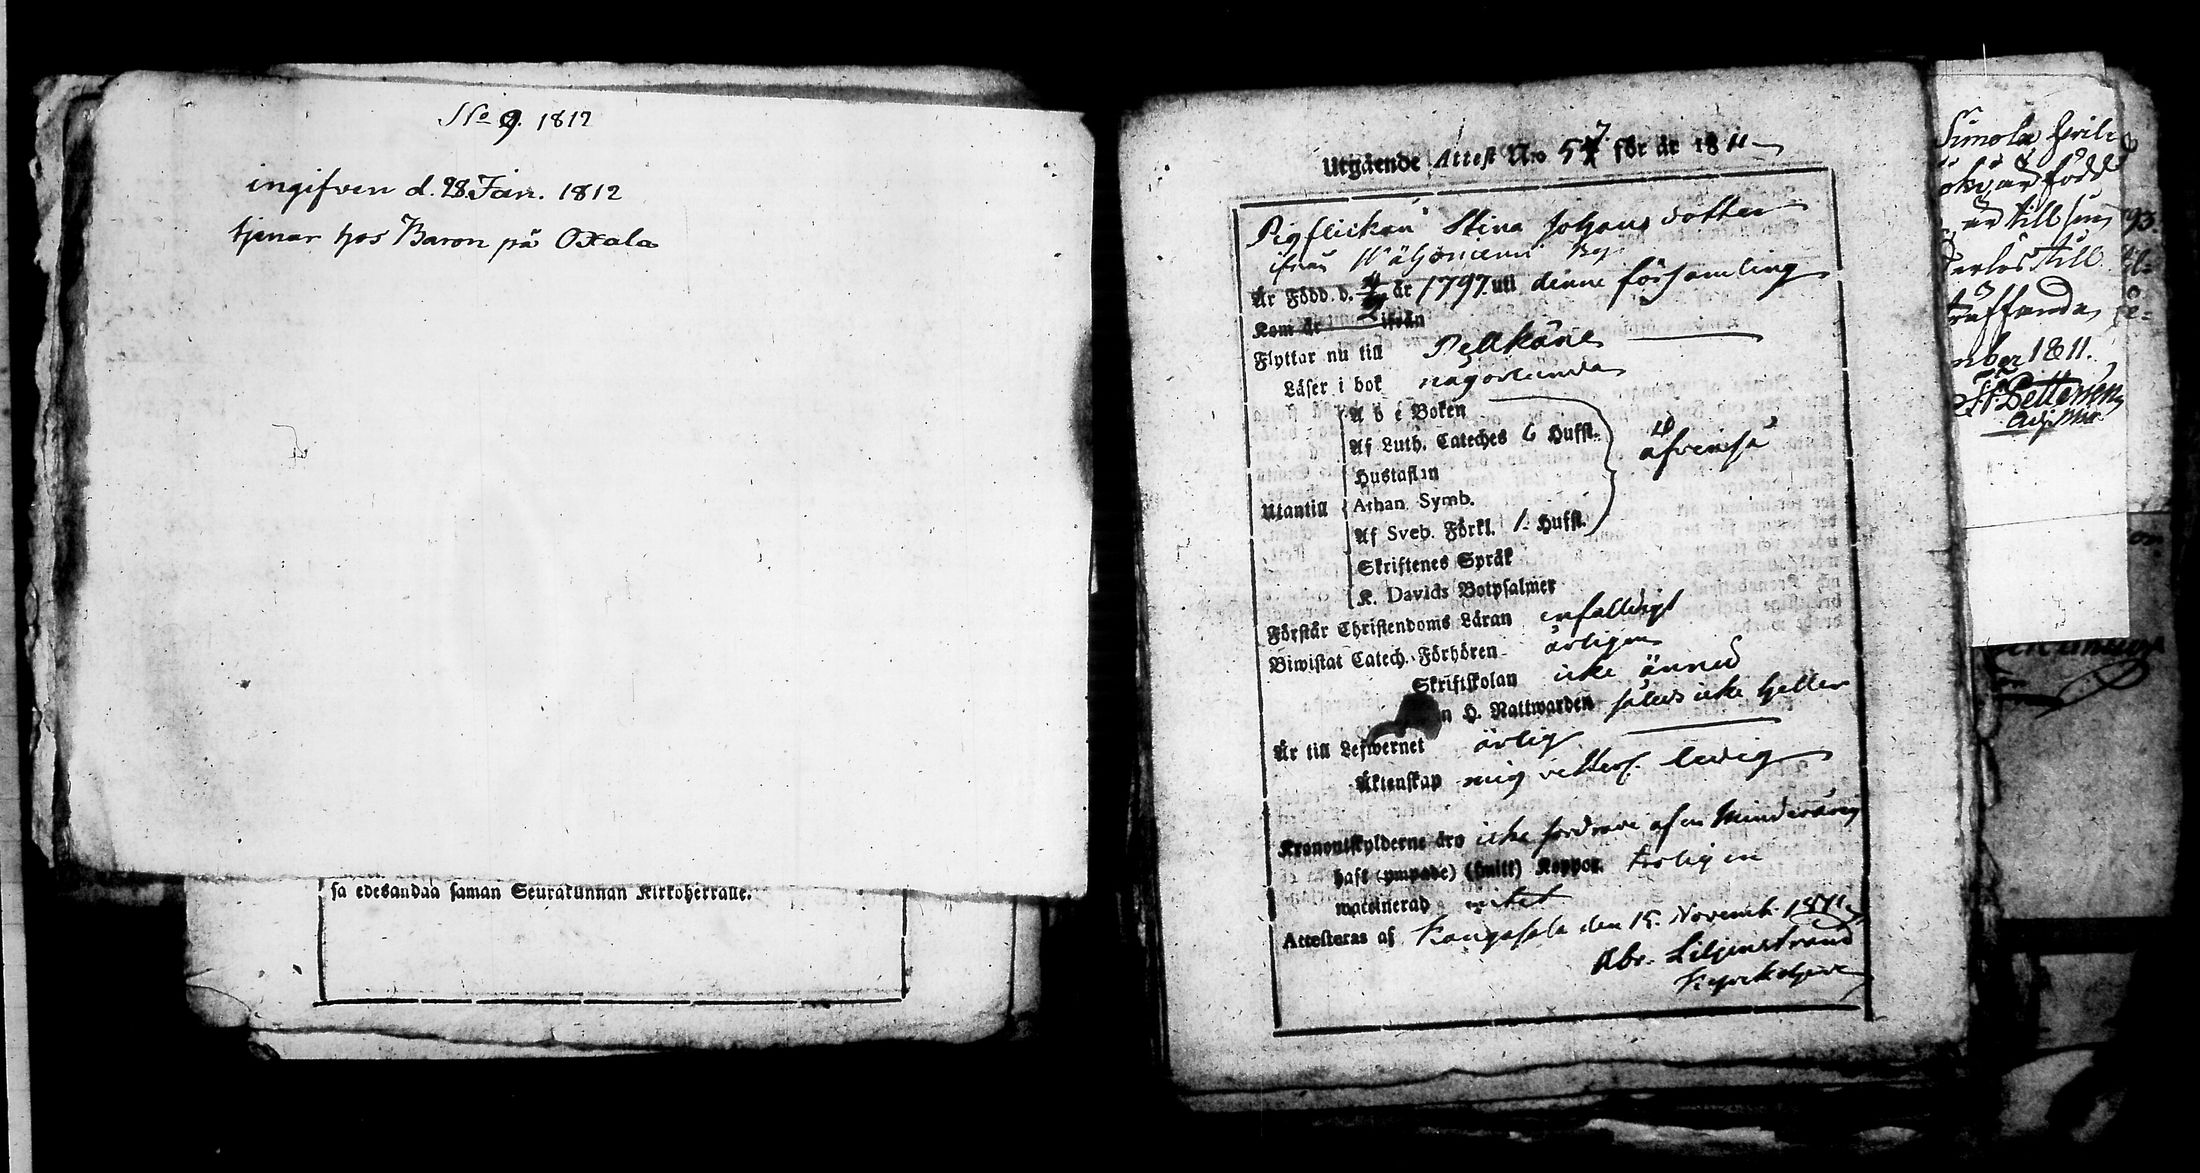 No 9. 1812
ingifven d. 28. Jan. 1812
tjenar hos Baron på Oxala
sa edesandaa saman Seurakunnan Kirkoherralle.
Utgående Attest N:o 57 för år 1811
Pigflickan Stina Johans dotter
ifrån By
Är Född d. år 1797. uti denne församling
Kom år ifrån
Flyttar nu till Pelkäne
Läser i bok någorlunda
A b c Boken
Af Luth. Cateches 6 Hufst.
äfvenså
Hustaflan
Utantill
Athan. Symb.
Af Sveb. Förkl. 1. Hufst.
Skriftenes Språk
K. Davids Botpsalmer
Förstår Christendoms Läran enfalldigt
Biwistat Catech. Förhören årligen
Skriftskolan icke ännu
n H. Nattwarden således icke heller
Är till Lefwernet ärlig
Äktenskap mig vetterl. ledig
Kronoutskylderne äro icke fordrade af en Minderårig
haft (ympade) (smitt) Koppor. troligen
waccinerad
Attesteras af Kangasala den 15. Novemb. 1811.
Abr. Liljenstrand
Kyrckoherde
Simola
född
till
till
träffande
mber 1811.
Pettersen
Adj. Min.
93.